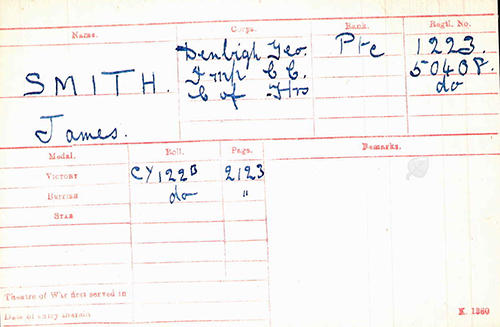 Name. Corps. Rank. Regtl. No.
SMITH. Denbigh Yeo. Pte 1223.
Imp C C. 50408.
C of Ho do
James.
Medal. Roll. Page. Remarks.
VICTORY CY122B 2123
BRITISH do "
STAR
Theatre of War first served in
Date of entry therein
K. 1360